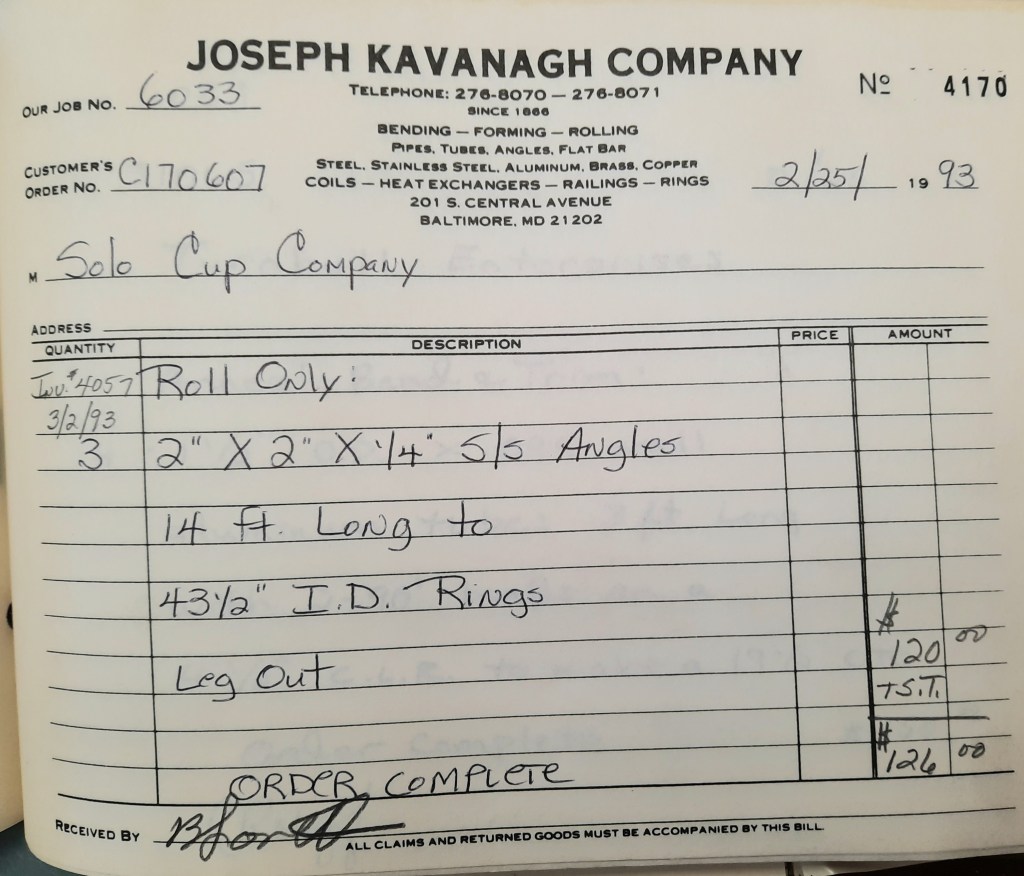 JOSEPH KAVANAGH COMPANY
OUR JOB NO. 6033
TELEPHONE: 276-8070 — 276-8071
Nº 4170
SINCE 1866
BENDING — FORMING — ROLLING
PIPES, TUBES, ANGLES, FLAT BAR
CUSTOMER'S ORDER NO. C170607
STEEL, STAINLESS STEEL, ALUMINUM, BRASS, COPPER
COILS — HEAT EXCHANGERS — RAILINGS — RINGS
2/25/ 1993
201 S. CENTRAL AVENUE
BALTIMORE, MD 21202
M Solo Cup Company
ADDRESS
QUANTITY DESCRIPTION PRICE AMOUNT
Inv.#4057 Roll Only:
3/2/93
3 2" X 2" X 1/4" S/S Angles
14 ft. Long to
43 1/2" I.D. Rings
Leg Out $120 00
+S.T.
$126 00
ORDER COMPLETE
RECEIVED BY
ALL CLAIMS AND RETURNED GOODS MUST BE ACCOMPANIED BY THIS BILL.